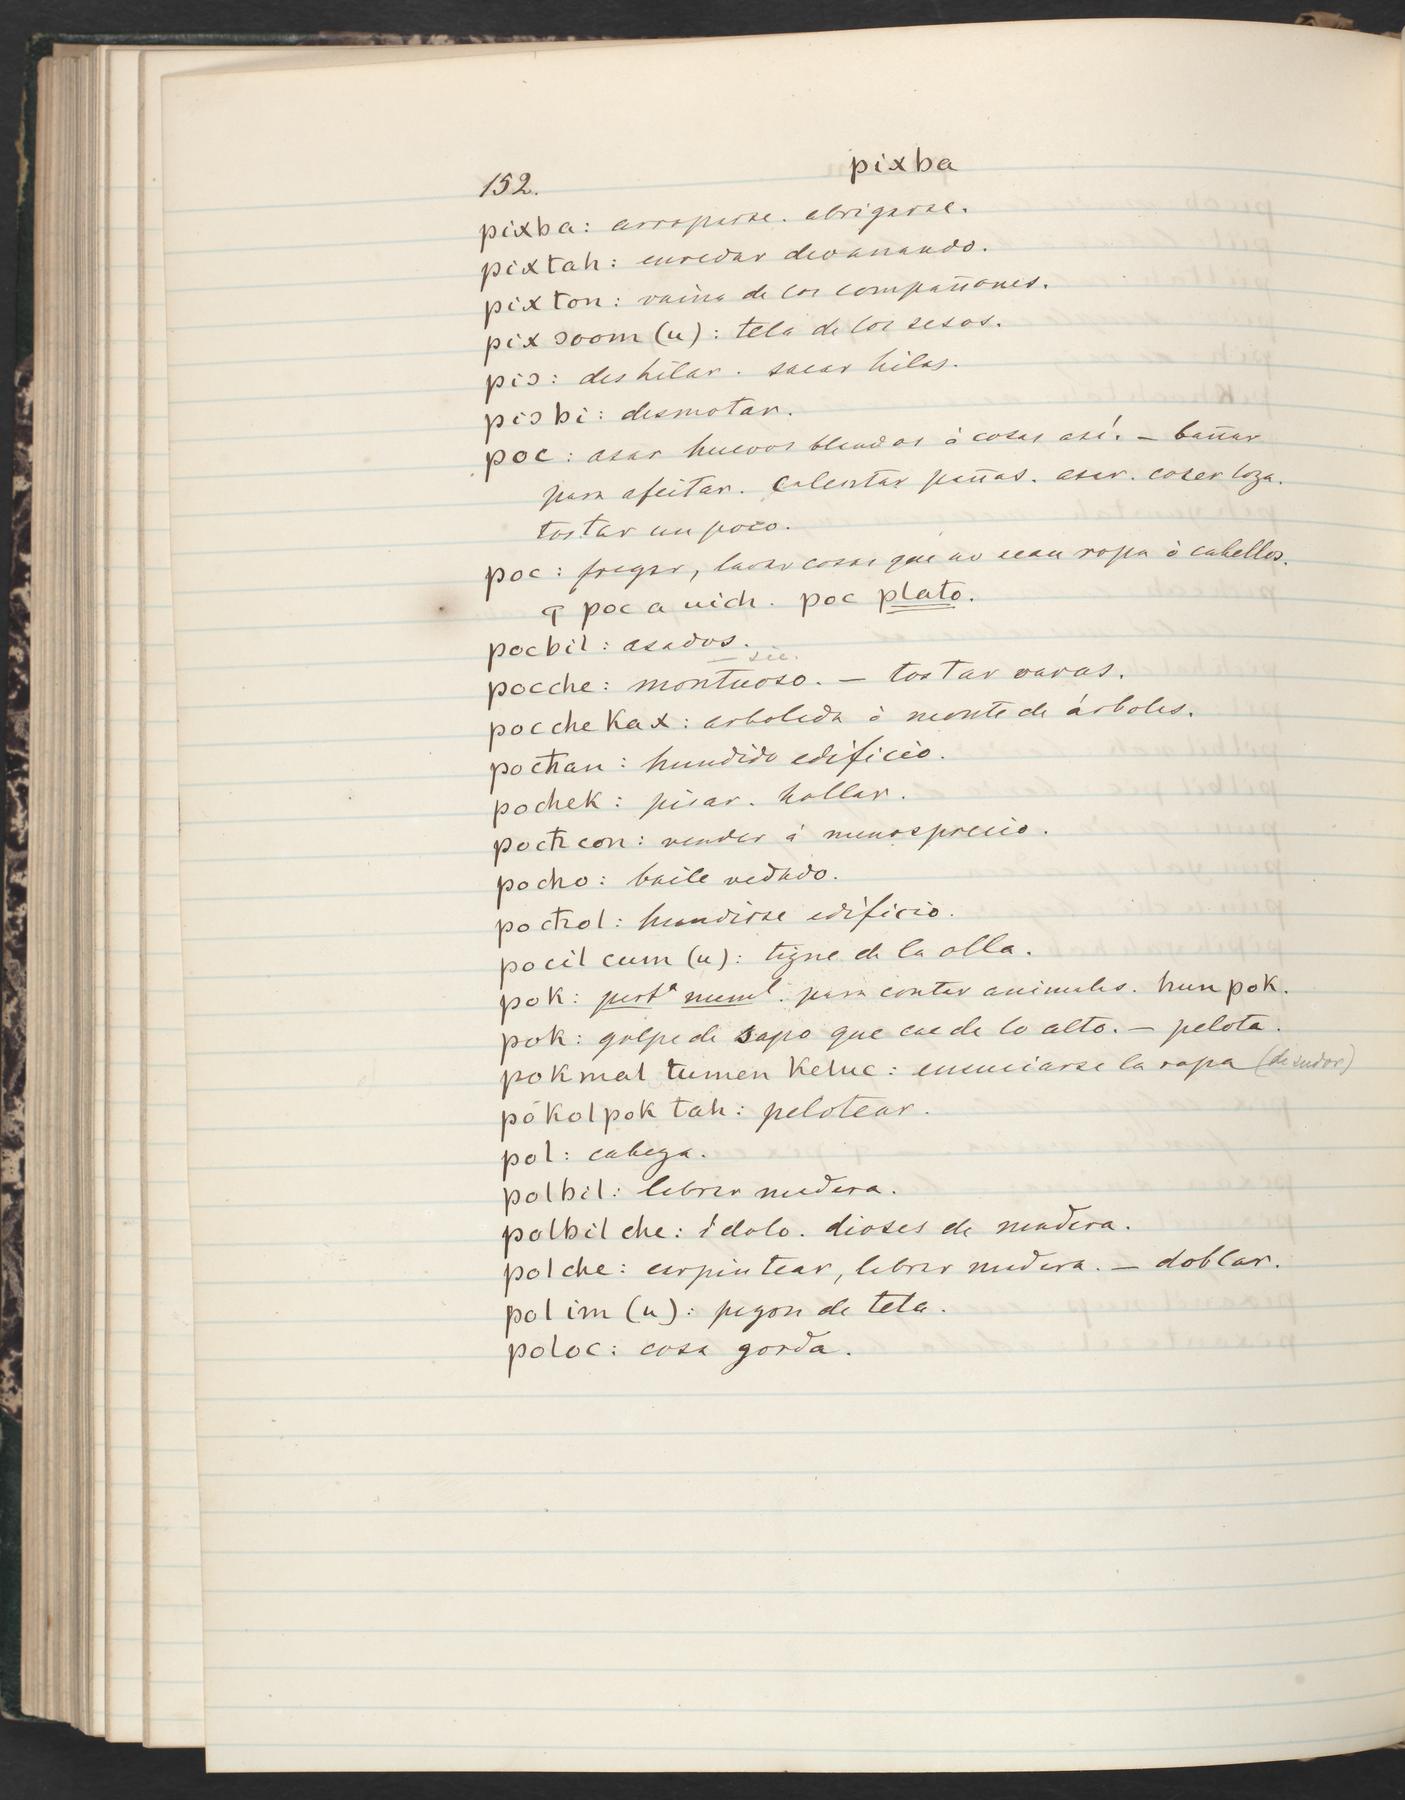 pixba
152.
pixba: arroparse. abrigarse.
pixtah: enredar devanando.
pixton: vaina de los compañones.
pix ɔoom (u): tela de los sesos.
piɔ: deshilar. sacar hilas.
piɔbi: desmotar.
poc: asar huevos blandos ò cosas así. — bañar
para afeitar. calentar paños. asar. coser loza.
tostar un poco.
poc: fregar, lavar cosas que no sean ropa ò cabellos.
ꟼ poc a uich. poc plato.
pocbil: asados.
— sic.
pocche: montuoso. — tostar varas.
pocche Kax: arboleda ò monte de árboles.
pocħan: hundido edificio.
pochek: pisar. hollar.
pocħ con: vender á menosprecio.
pocho: baile vedado.
pocħol: hundirse edificio.
pocil cum (u): tizne de la olla.
pok: partª numl. para contar animales. hun pok.
pok: golpe de sapo que cae de lo alto. — pelota.
pokmal tumen Keluc: ensuciarse la ropa (de sudor)
pókolpok tah: pelotear.
pol: cabeza.
polbil: labrar madera.
polbil che: ídolo. dioses de madera.
polche: carpintear, labrar madera. — doblar.
pol im (u): pezon de teta.
poloc: cosa gorda.